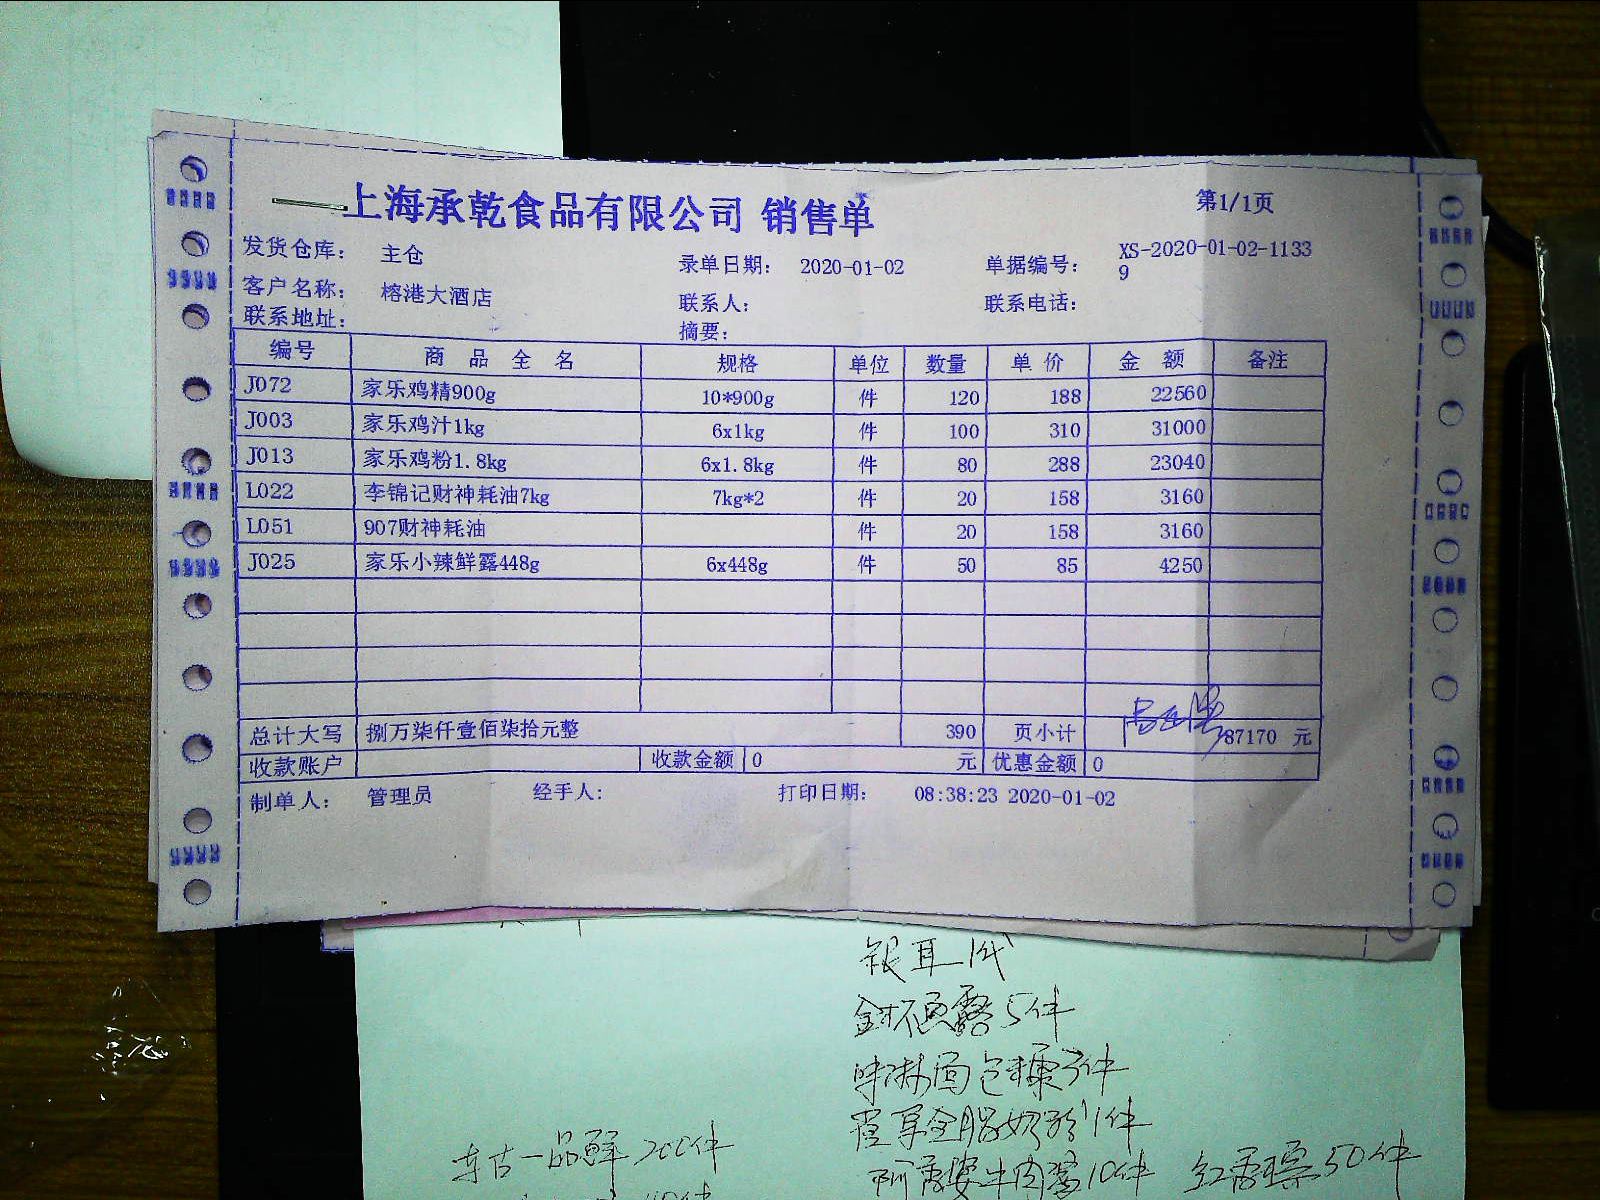 上海承乾食品有限公司 销售单
第1/1页
发货仓库： 主仓
录单日期： 2020-01-02
单据编号： XS-2020-01-02-1133
9
客户名称： 榕港大酒店
联系人：
联系电话：
联系地址：
摘要：
编号 商 品 全 名 规格 单位 数量 单 价 金 额 备注
J072 家乐鸡精900g 10*900g 件 120 188 22560
J003 家乐鸡汁1kg 6x1kg 件 100 310 31000
J013 家乐鸡粉1.8kg 6x1.8kg 件 80 288 23040
L022 李锦记财神耗油7kg 7kg*2 件 20 158 3160
L051 907财神耗油 件 20 158 3160
J025 家乐小辣鲜露448g 6x448g 件 50 85 4250
总计大写 捌万柒仟壹佰柒拾元整 390 页小计 87170 元
收款账户 收款金额 0 元 优惠金额 0
制单人： 管理员 经手人： 打印日期： 08:38:23 2020-01-02
银耳1代
露5件
面包糠3件
全脂奶粉1件
一品鲜200件
10件
50件